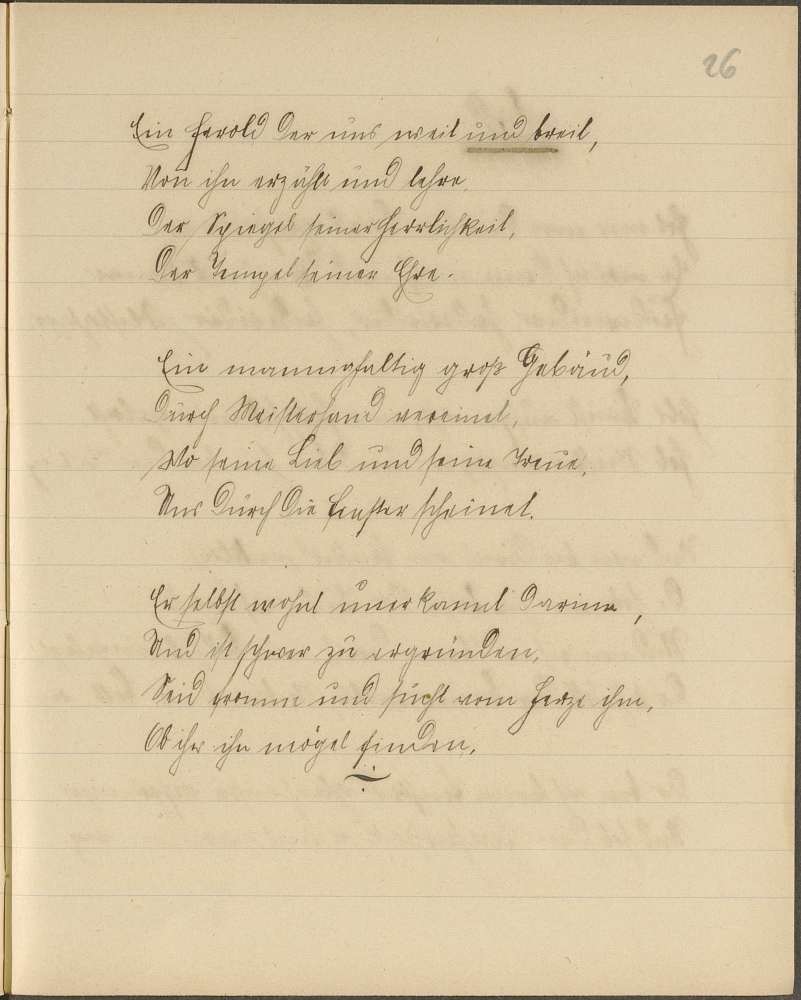 26
Ein Herold der uns weit und breit,
Von ihn erzähle und lehre,
Der Spiegel seiner Herrlichkeit,
Der Tempel seiner Ehre.
Ein mannigfaltig groß Gebäud,
Durch Meisterhand vereinet,
Wo seine Lieb und seine Treue,
Uns durch die Fenster scheinet.
Er selbst wohnt unerkannt darinn,
Und ist schwer zu ergründen,
Seid fromm und sucht vom Herze ihn,
Ob ihr ihn möget finden.